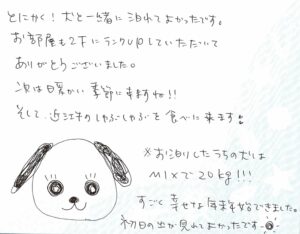 とにかく!犬と一緒に泊れてよかったです。
お部屋も2Fにランクupしていただいて
ありがとうございました。
次は暖かい季節に来ますね!!
そして、近江牛のしゃぶしゃぶを食べに来ます
※お泊りしたうちの犬は
MIXで20kg!!!
すごく幸せな年末年始できました。
初日の出が見れてよかったです